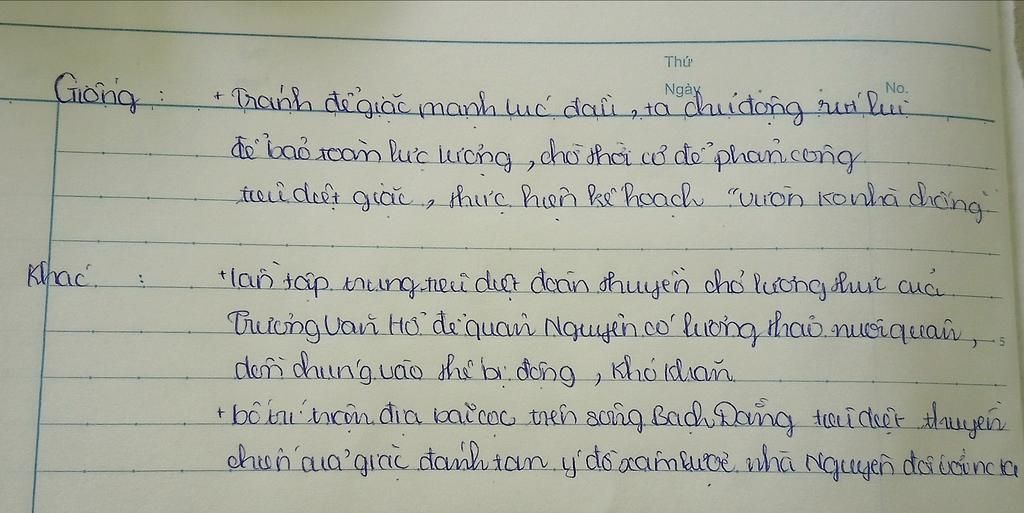 Thứ
Ngày No.
Giống : + Tránh để giặc mạnh lúc đầu, ta chủ động rút lui
để bảo toàn lực lượng, chờ thời cơ để phản công
tiêu diệt giặc, thực hiện kế hoạch "vườn ko nhà chống"
Khác : + lần tập trung tiêu diệt đoàn thuyền chở lương thực của
Trương Văn Hổ để quân Nguyên có lương thảo nuôi quân,
dồn chúng vào thế bị động, khó khăn
+ bố trí trận địa bãi cọc trên sông Bạch Đằng tiêu diệt thuyền
chiến của giặc đánh tan ý đồ xâm lược nhà Nguyên đối với nc ta